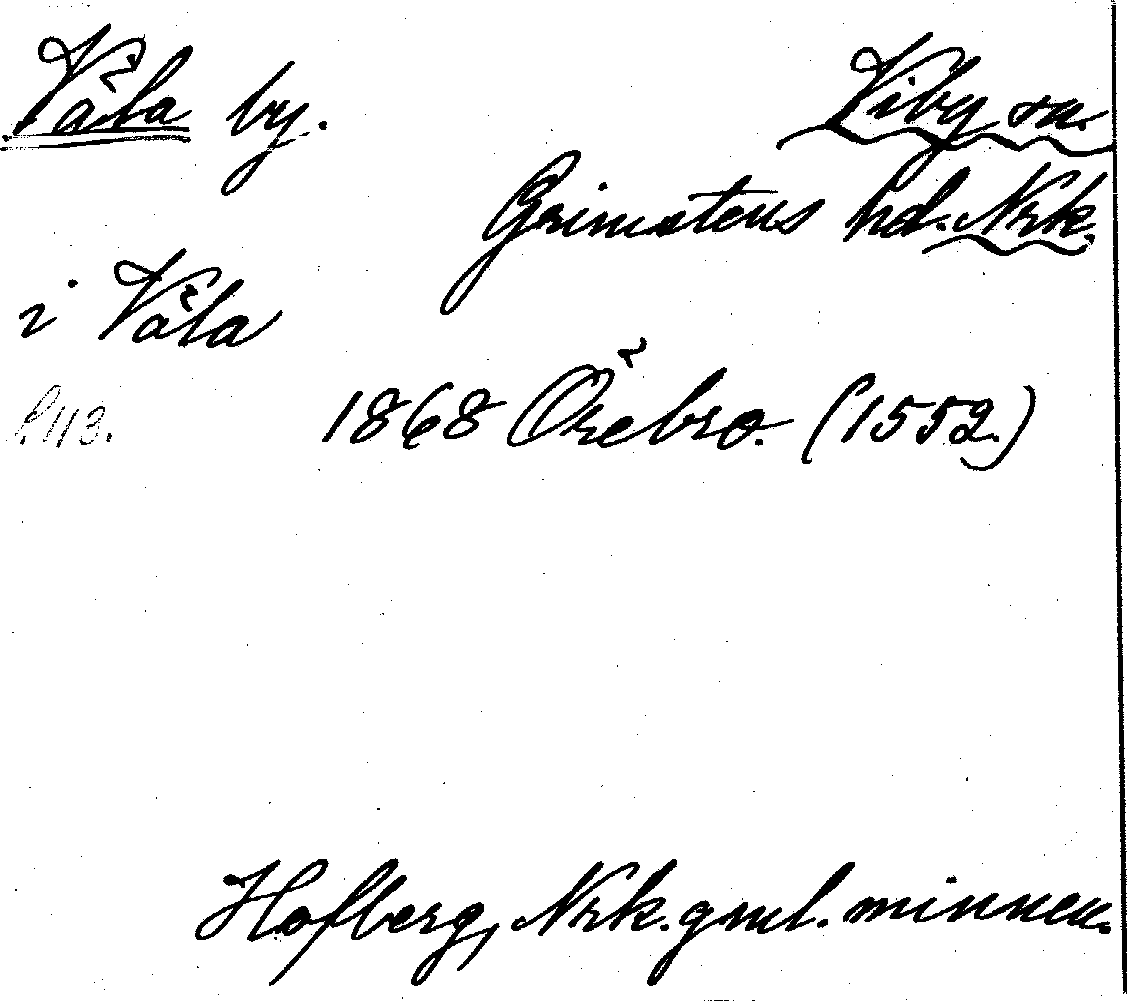 Våla by. Viby sn.
Grimstens hd. Nrk.
i Våla
s. 113. 1868 Örebro. (1552.)
Hofberg, Nrk. gml. minnen.